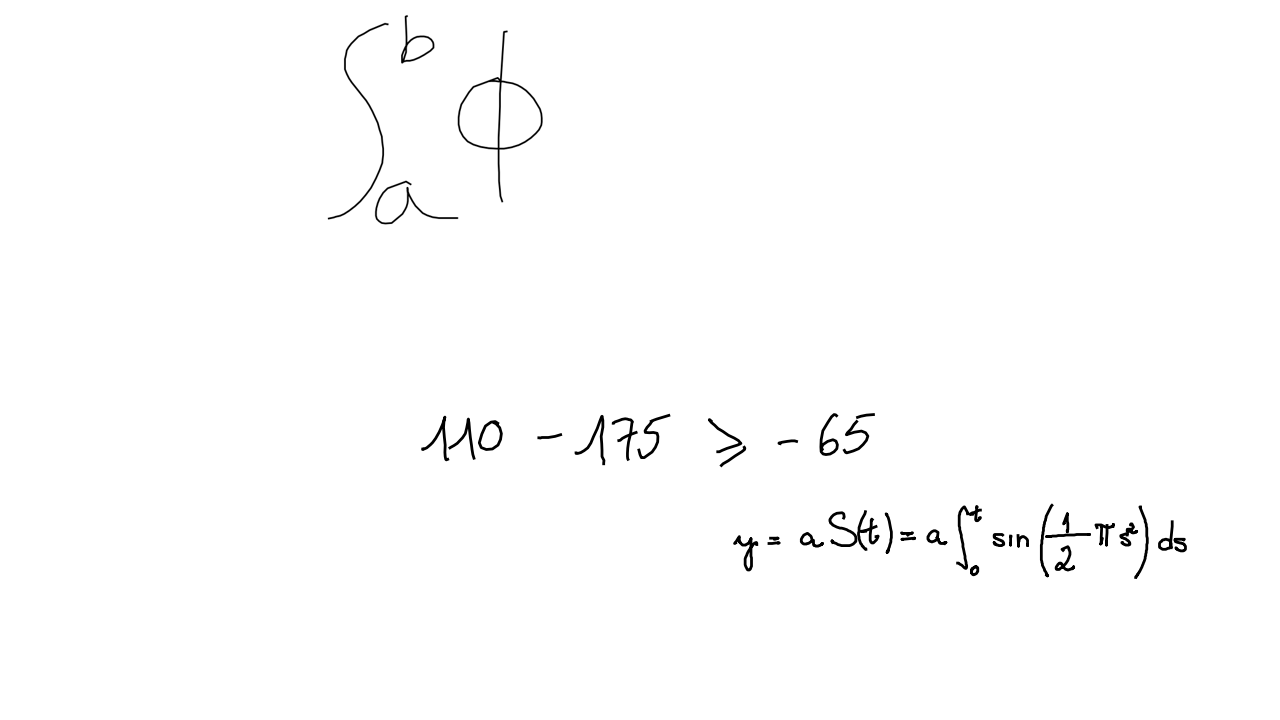 ∫_a^b ϕ
110 - 175 ⩾ - 65
y = a S(t) = a ∫_0^t sin(1/2 π s²) ds